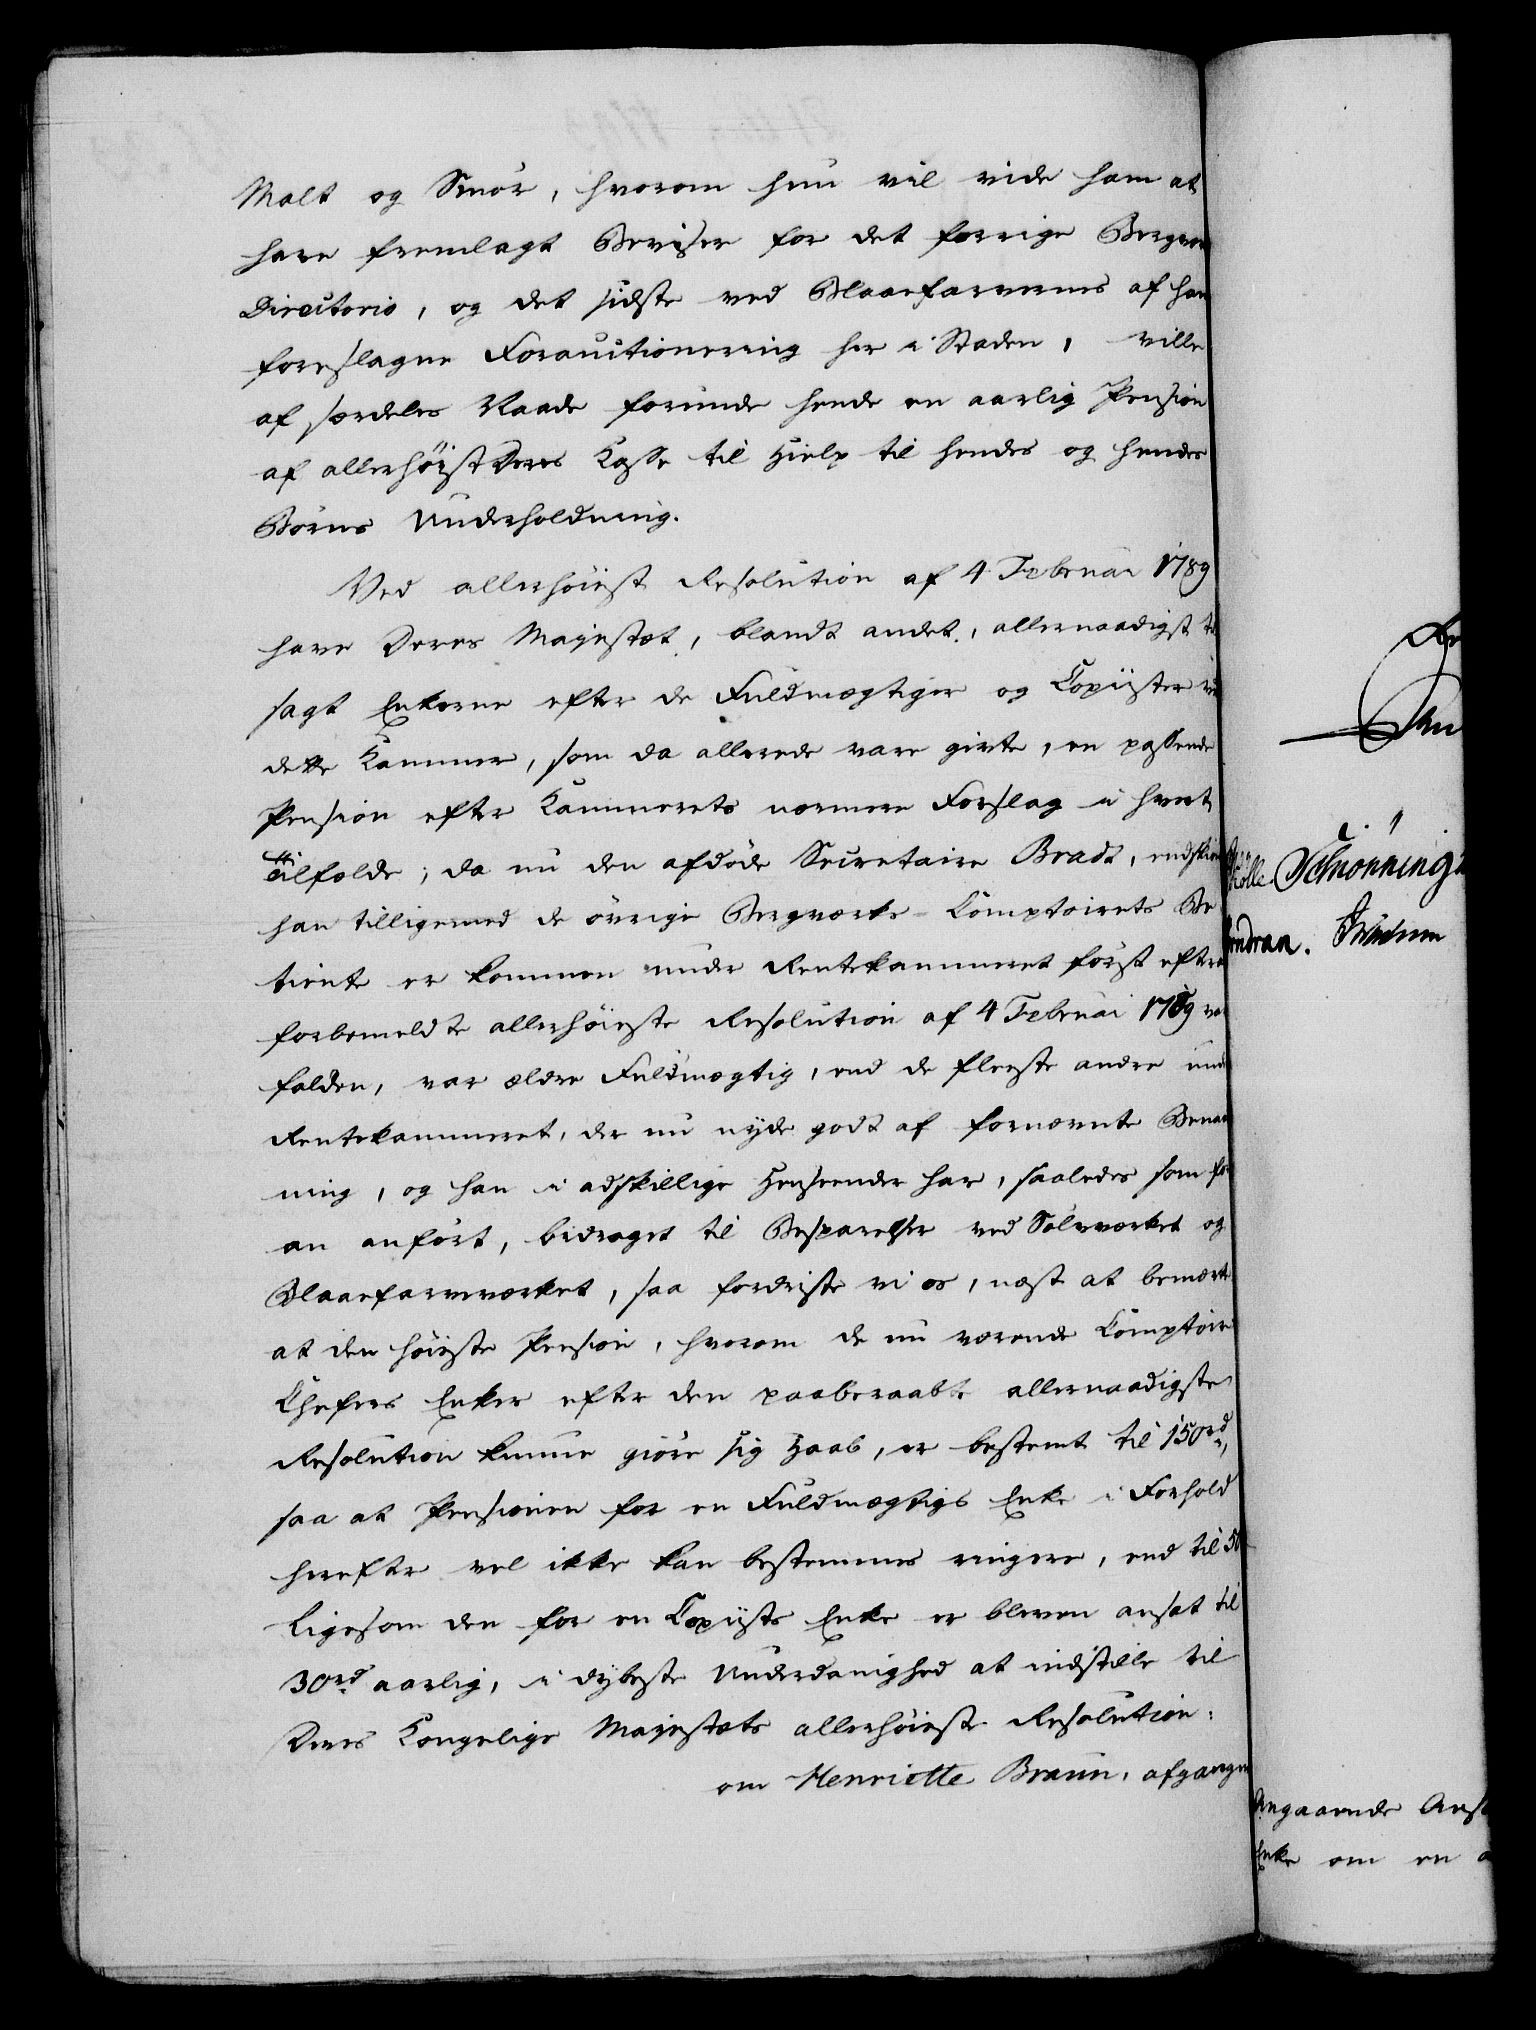 Malt og Smör, hvorom hun vil vide ham at
have fremlagt Beviser for det forrige Bergv
Directorio, og det sidste ved Blaaefarvernes af ham
foreslagne Forauctionering her i Staden, ville
af særdeles Naade forunde hende en aarlig Pension
af allerhöist Deres Kasse til Hielp til hendes og hendes
Börns Underholdning.
Ved allerhöiest Resolution af 4 Februar 1789
have Deres Majestæt, blandt andet, allernaadigst til
sagt Enkerne efter de Fuldmægtiger og Copiister ved
dette Kammer, som da allerede vare givte, en passende
Pension efter Kammerets nærmere Forslag i hvert
Tilfælde; da nu den afdöde Secretaire Bradt, endskiön
han tilligemed de övrige Bergværks-Comptoirets Be
tiente er kommen under Rentekammeret först efter
forbemeldte allerhöieste Resolution af 4 Februar 1789 va
falden, var ældre Fuldmægtig, end de fleeste andre und
Rentekammeret, der nu nyde godt af fornævnte Benaad
ning, og han i adskillige Henseender har, saaledes som for
an anfört, bidraget til Besparelser ved Sölvværket og
Blaaefarveværket, saa fordriste vi os, næst at bemærke
at den höieste Pension, hvorom de nu værende Comptoir
Chefers Enker efter den paaberaabte allernaadigste
Resolution kunne giöre sig Haab, er bestemt til 150 rd,
saa at Pensionen for en Fuldmægtigs Enke i Forhold
herefter vel ikke kan bestemmes ringere, end til 50
Ligesom den for en Copiists Enke er bleven ansat til
30 rd aarlig, i dybeste Underdanighed at indstille til
Deres Kongelige Majestæts allerhöieste Resolution:
om Henriette Braun, afgangne
Schönning
Wadum
Angaaende Ans
Enke om en a